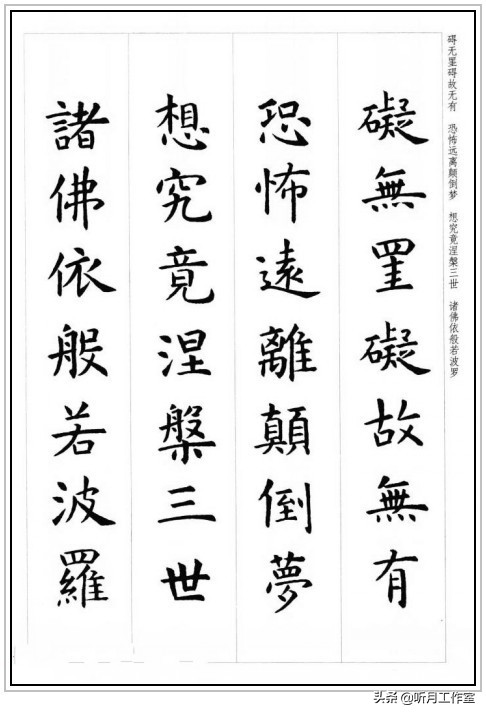 碍无罣碍故无有 恐怖远离颠倒梦 想究竟涅槃三世 诸佛依般若波罗
礙無罣礙故無有
恐怖遠離顛倒夢
想究竟涅槃三世
諸佛依般若波羅
头条@听月工作室